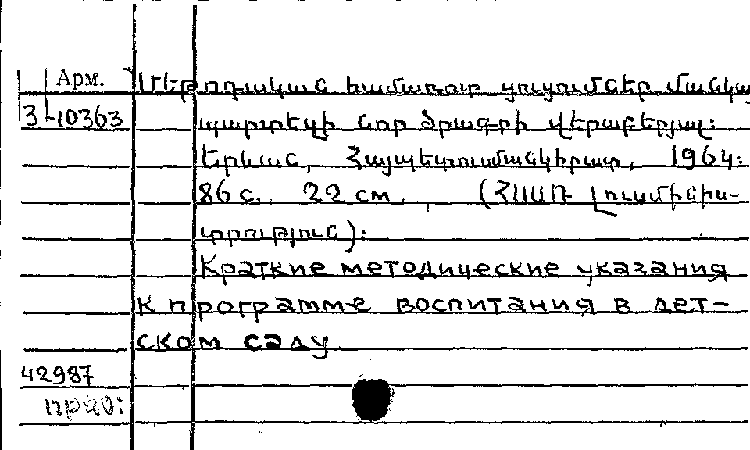 Арм.
Մեթոդական համառոտ ցուցումներ մանկա
3-10363
պարտեզի նոր ծրագրի վերաբերյալ։
Երևան, Հայպետուսմանկհրատ, 1964։
86 с. 22 см. (ՀՍՍՌ Լուսմինիս-
տրություն)։
Краткие методические указания
к программе воспитания в дет-
ском саду
42987